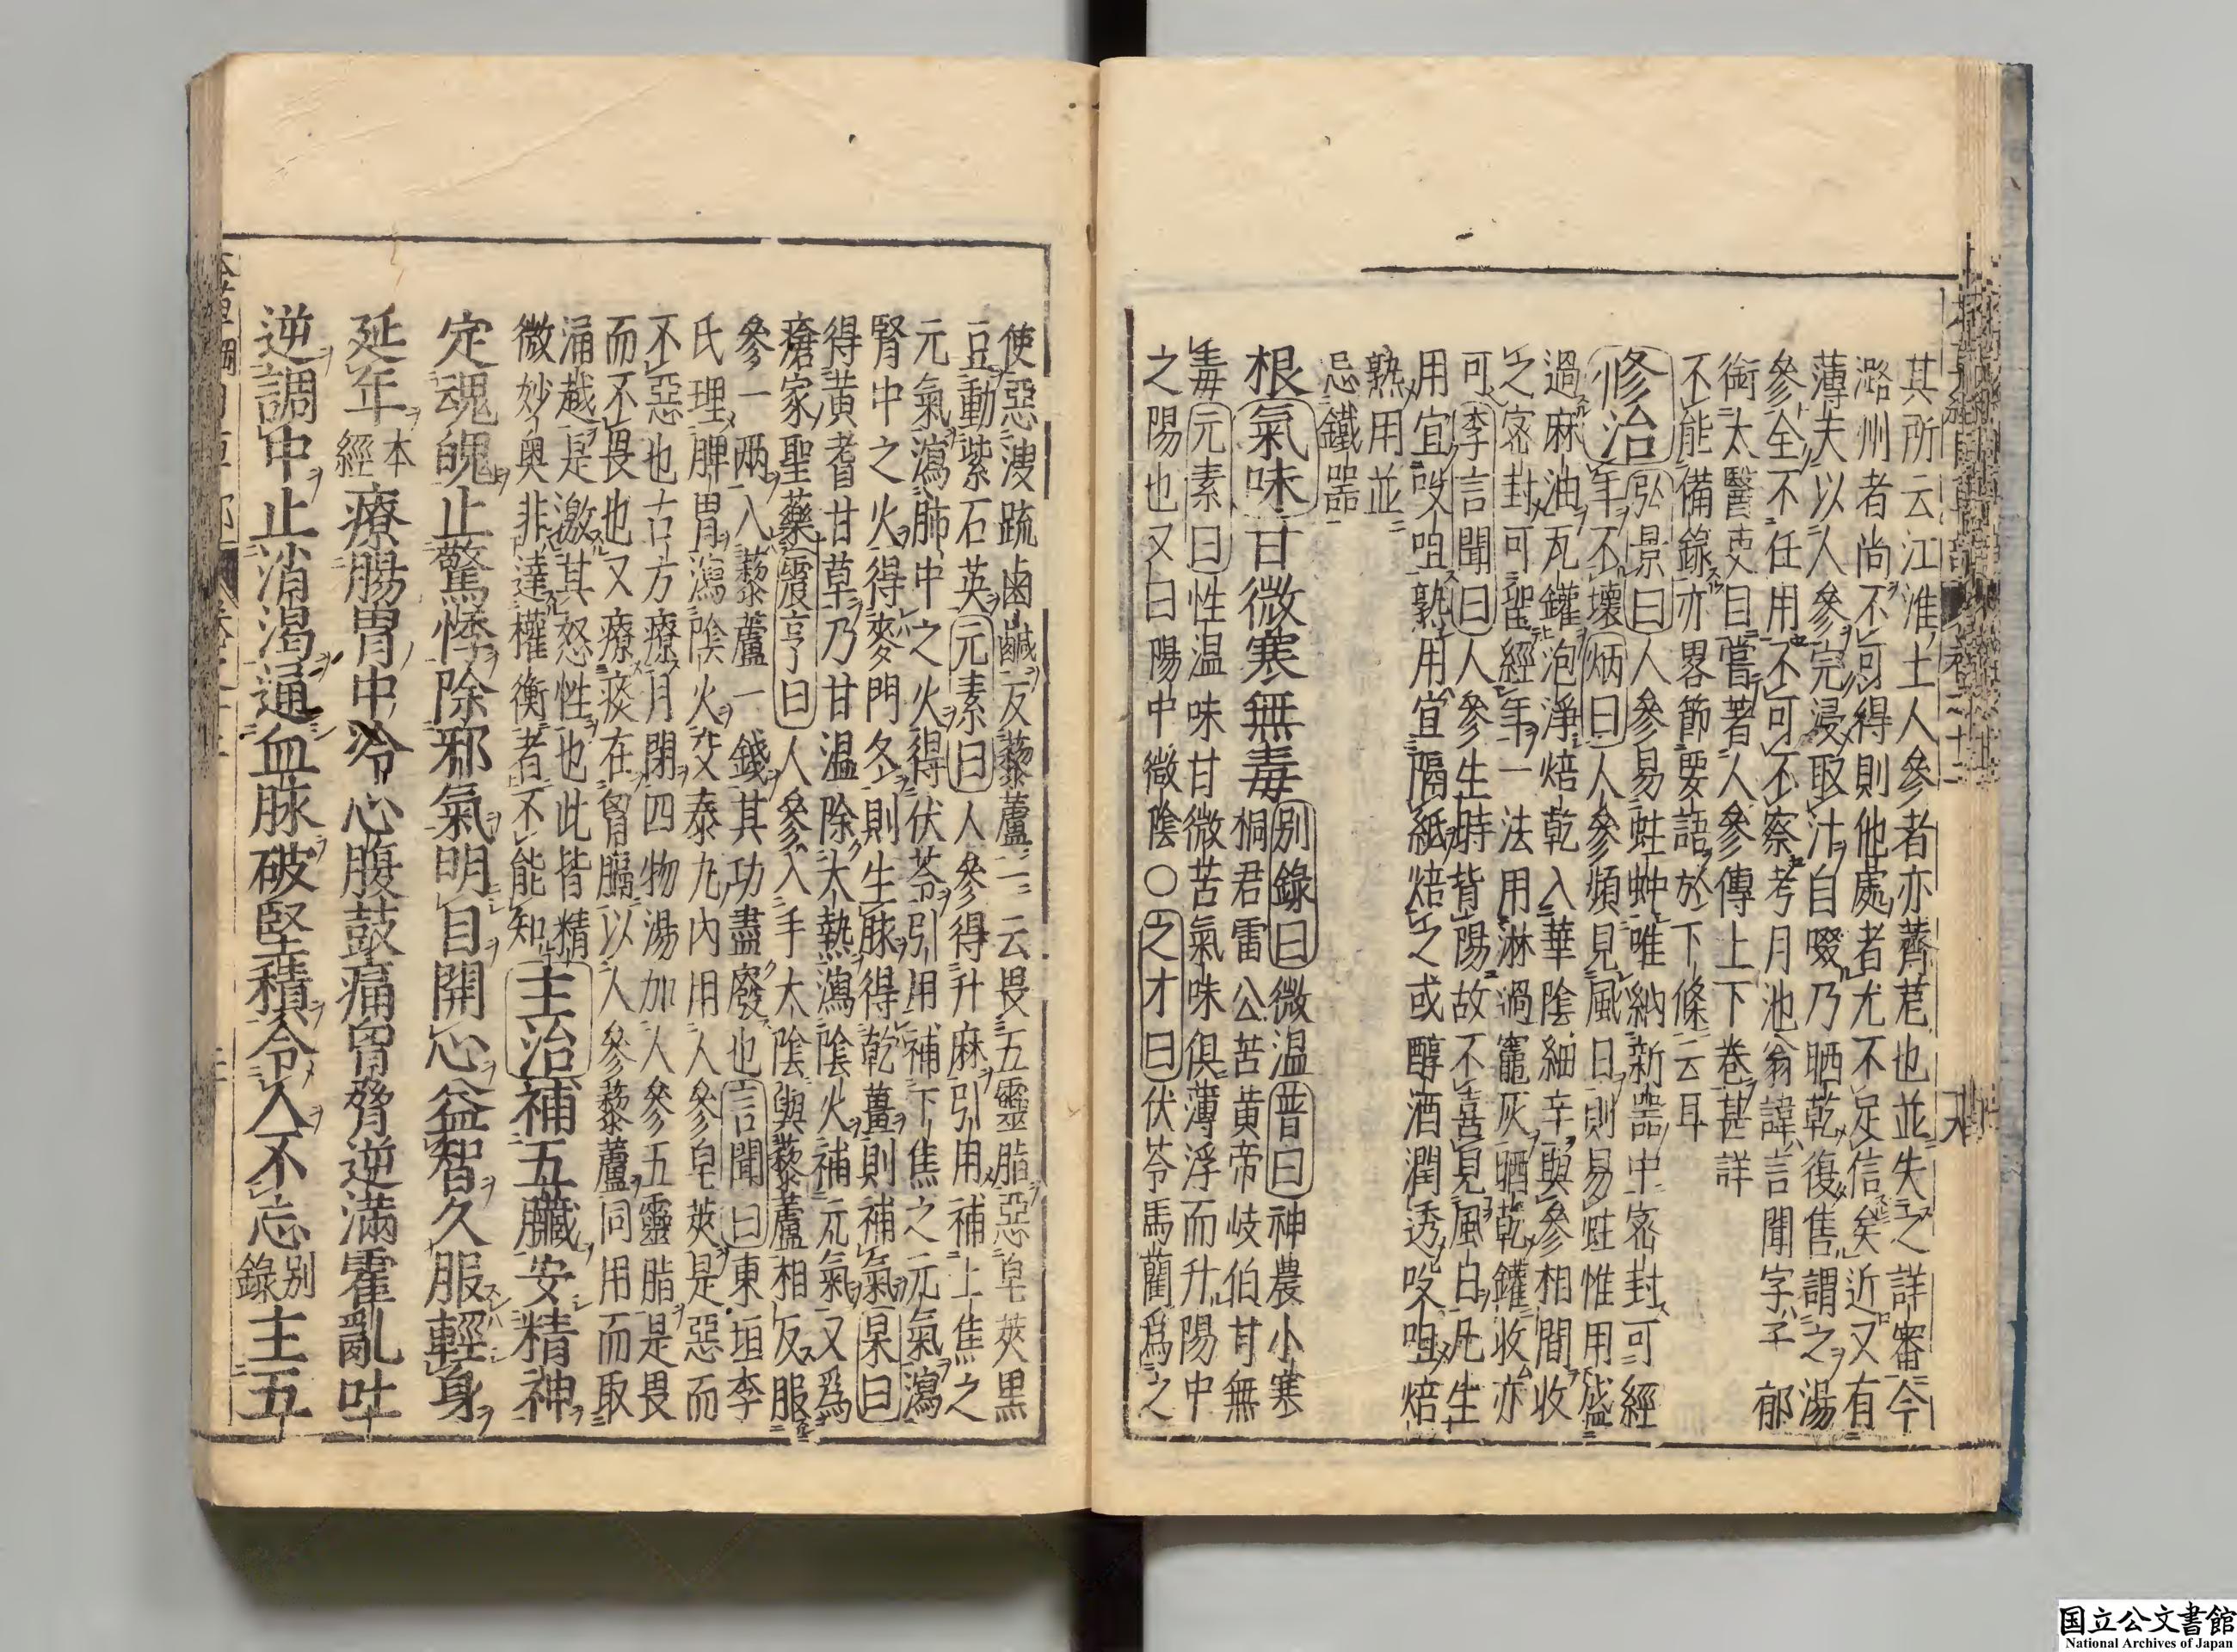 其所云江淮土人參者亦薺苨也並失之詳審今
潞州者尚不可得則他處者尤不足信矣近又有
薄夫以人參完浸取汁自啜乃晒乾復售謂之湯
參全不任用不可不察考月池翁諱言聞字子郁
銜太醫吏目嘗著人參傳上下卷甚詳
不能備錄亦畧節要語於下條云耳
修治 弘景曰人參易蛀蚛唯納新器中密封可經
年不壞炳曰人參頻見風日則易蛀惟用盛
過麻油瓦罐泡淨焙乾入華陰細辛與參相間收
之密封可留經年一法用淋過竈灰晒乾罐收亦
可李言聞曰人參生時背陽故不喜見風日凡生
用宜㕮咀熟用宜隔紙焙之或醇酒潤透㕮咀焙
熟用並
忌鐵器
根氣味甘微寒無毒 別錄曰微温普曰神農小寒
桐君雷公苦黄帝岐伯甘無
毒元素曰性温味甘微苦氣味俱薄浮而升陽中
之陽也又曰陽中微陰○之才曰伏苓馬藺爲之
使惡溲疏鹵鹹反藜蘆一云畏五靈脂惡皁莢黒
豆動紫石英元素曰人參得升麻引用補上焦之
元氣瀉肺中之火得伏苓引用補下焦之元氣瀉
腎中之火得麥門冬則生脉得乾薑則補氣杲曰
得黄耆甘草乃甘温除大熱瀉陰火補元氣又爲
瘡家聖藥震亨曰人參入手太陰與藜蘆相反服
參一兩入藜蘆一錢其功盡廢也言聞曰東垣李
氏理脾胃瀉陰火交泰丸内用人參皁莢是惡而
不惡也古方療月閉四物湯加人參五靈脂是畏
而不畏也又療痰在胷膈以人參藜蘆同用而取
涌越是激其怒性也此皆精
微妙奥非達權衡者不能知
主治補五臟安精神
定魂魄止驚悸除邪氣明目開心益智久服輕身
延年本經療腸胃中冷心腹鼓痛胷脅逆滿霍亂吐
逆調中止消渇通血脉破堅積令人不忘別錄主五
国立公文書館
National Archives of Japan